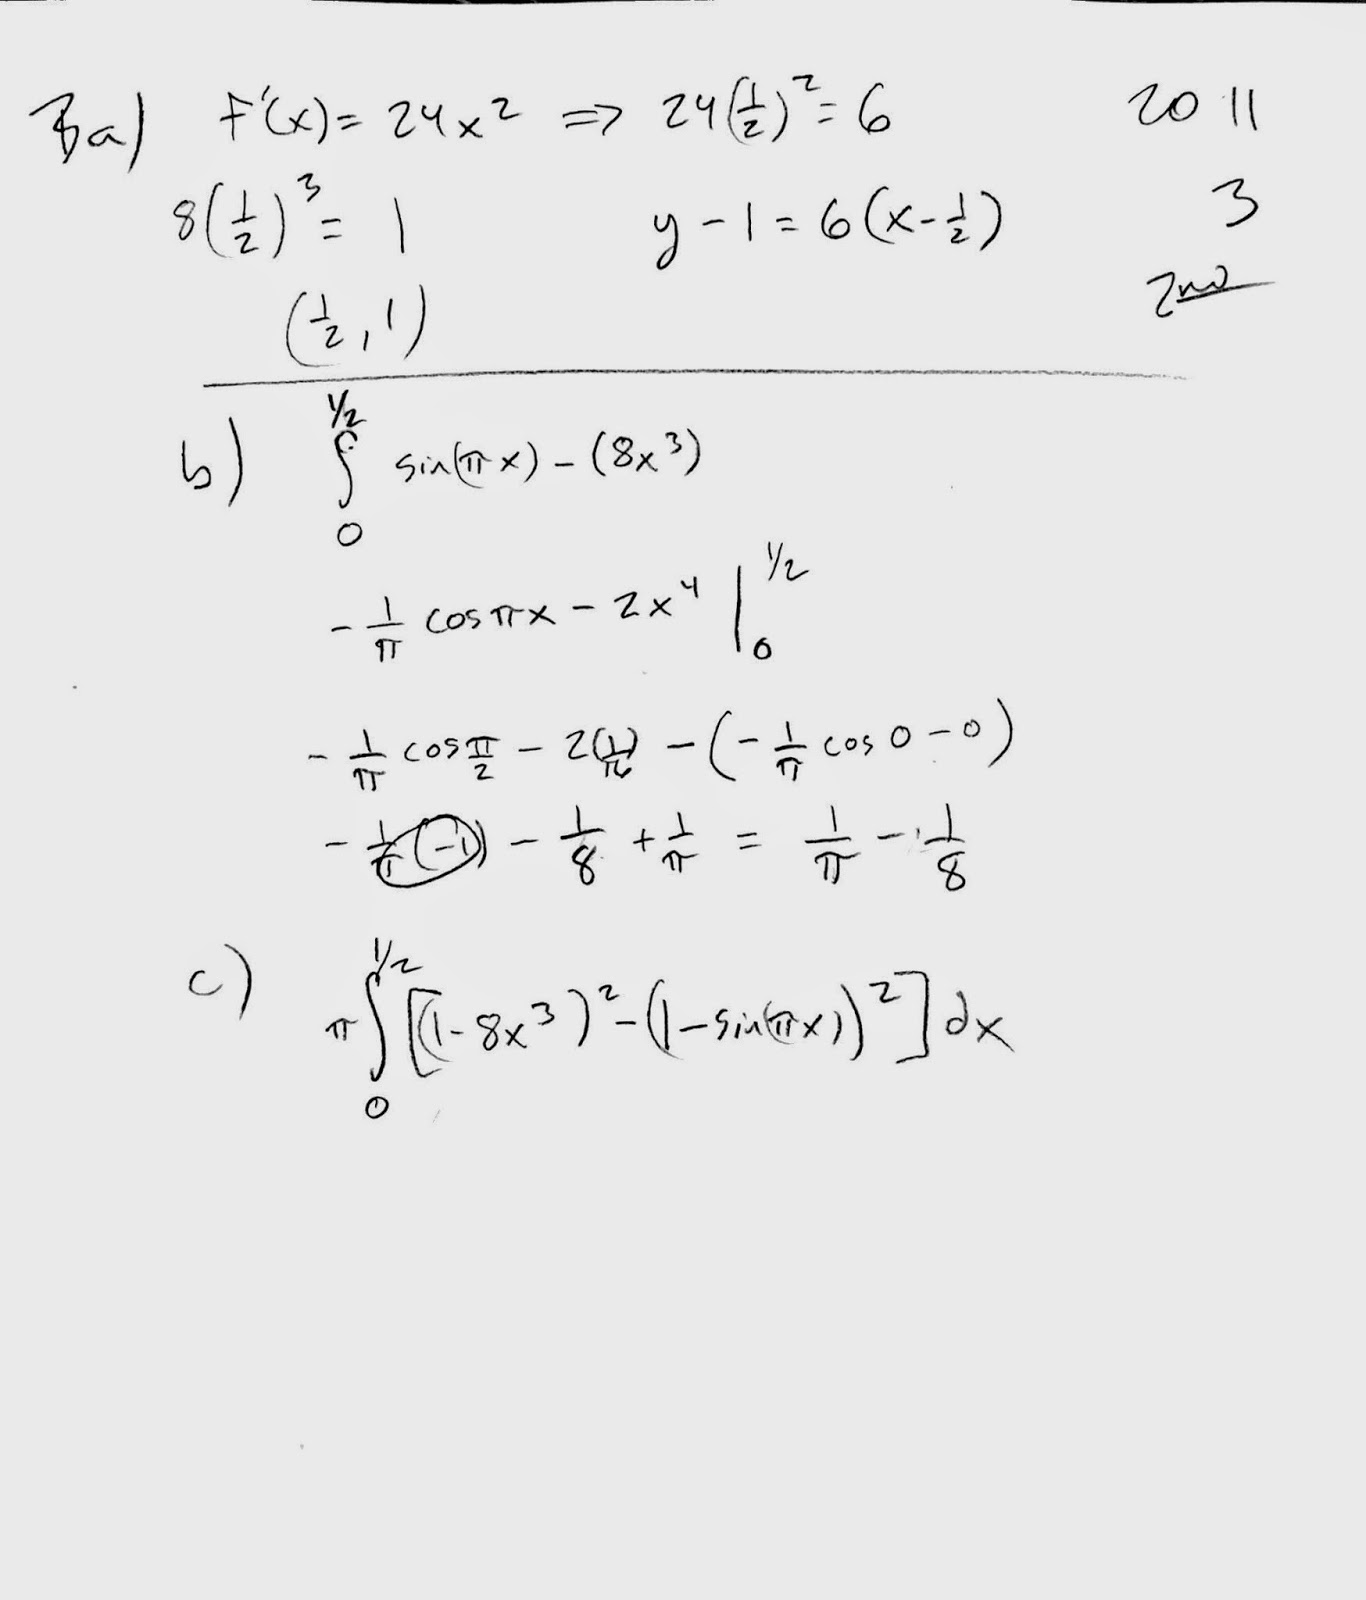 3a) F'(x) = 24x² => 24(1/2)² = 6 2011
8(1/2)³ = 1 y - 1 = 6(x - 1/2) 3
(1/2, 1) 2nd
b) ∫₀^{1/2} sin(πx) - (8x³)
-1/π cos πx - 2x⁴ |₀^{1/2}
-1/π cos π/2 - 2(1/16) - (-1/π cos 0 - 0)
-1/π(-1) - 1/8 + 1/π = 1/π - 1/8
c) π∫₀^{1/2} [(1 - 8x³)² - (1 - sin(πx))²] dx